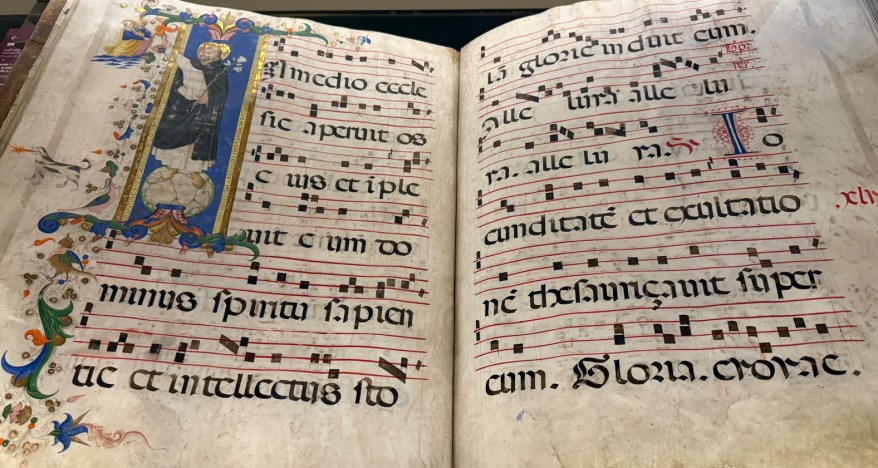 In medio eccle
sie aperuit os
eius et iple
vit eum do
minus spiritu sapien
tie et intellectus sto
lã glorie induit eum.
alle luya alle lu
ya. alle lu ya. Ps I o
cunditatẽ et exultatio
.xlv
nẽ thesaurizavit super
eum. Gloria. evovae.